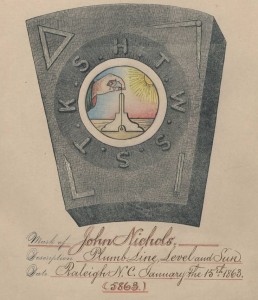 H T W S S T K S
Mark of John Nichols,
Description Plumb Line, Level and Sun
Date Raleigh N.C. January the 15th 1863.
(5863)